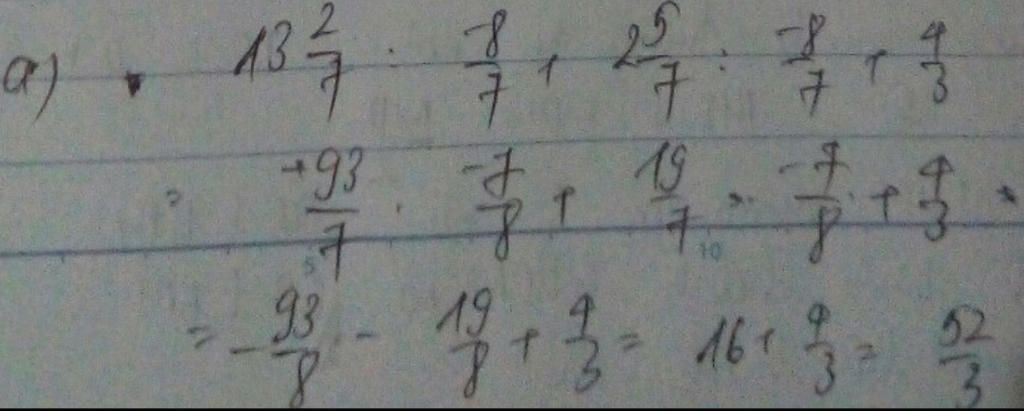 a) 13 2/7 : -8/7 + 2 5/7 : -8/7 + 4/3
= +93/7 . -7/8 + 19/7 . -7/8 + 4/3
= -93/8 - 19/8 + 4/3 = 16 + 4/3 = 52/3